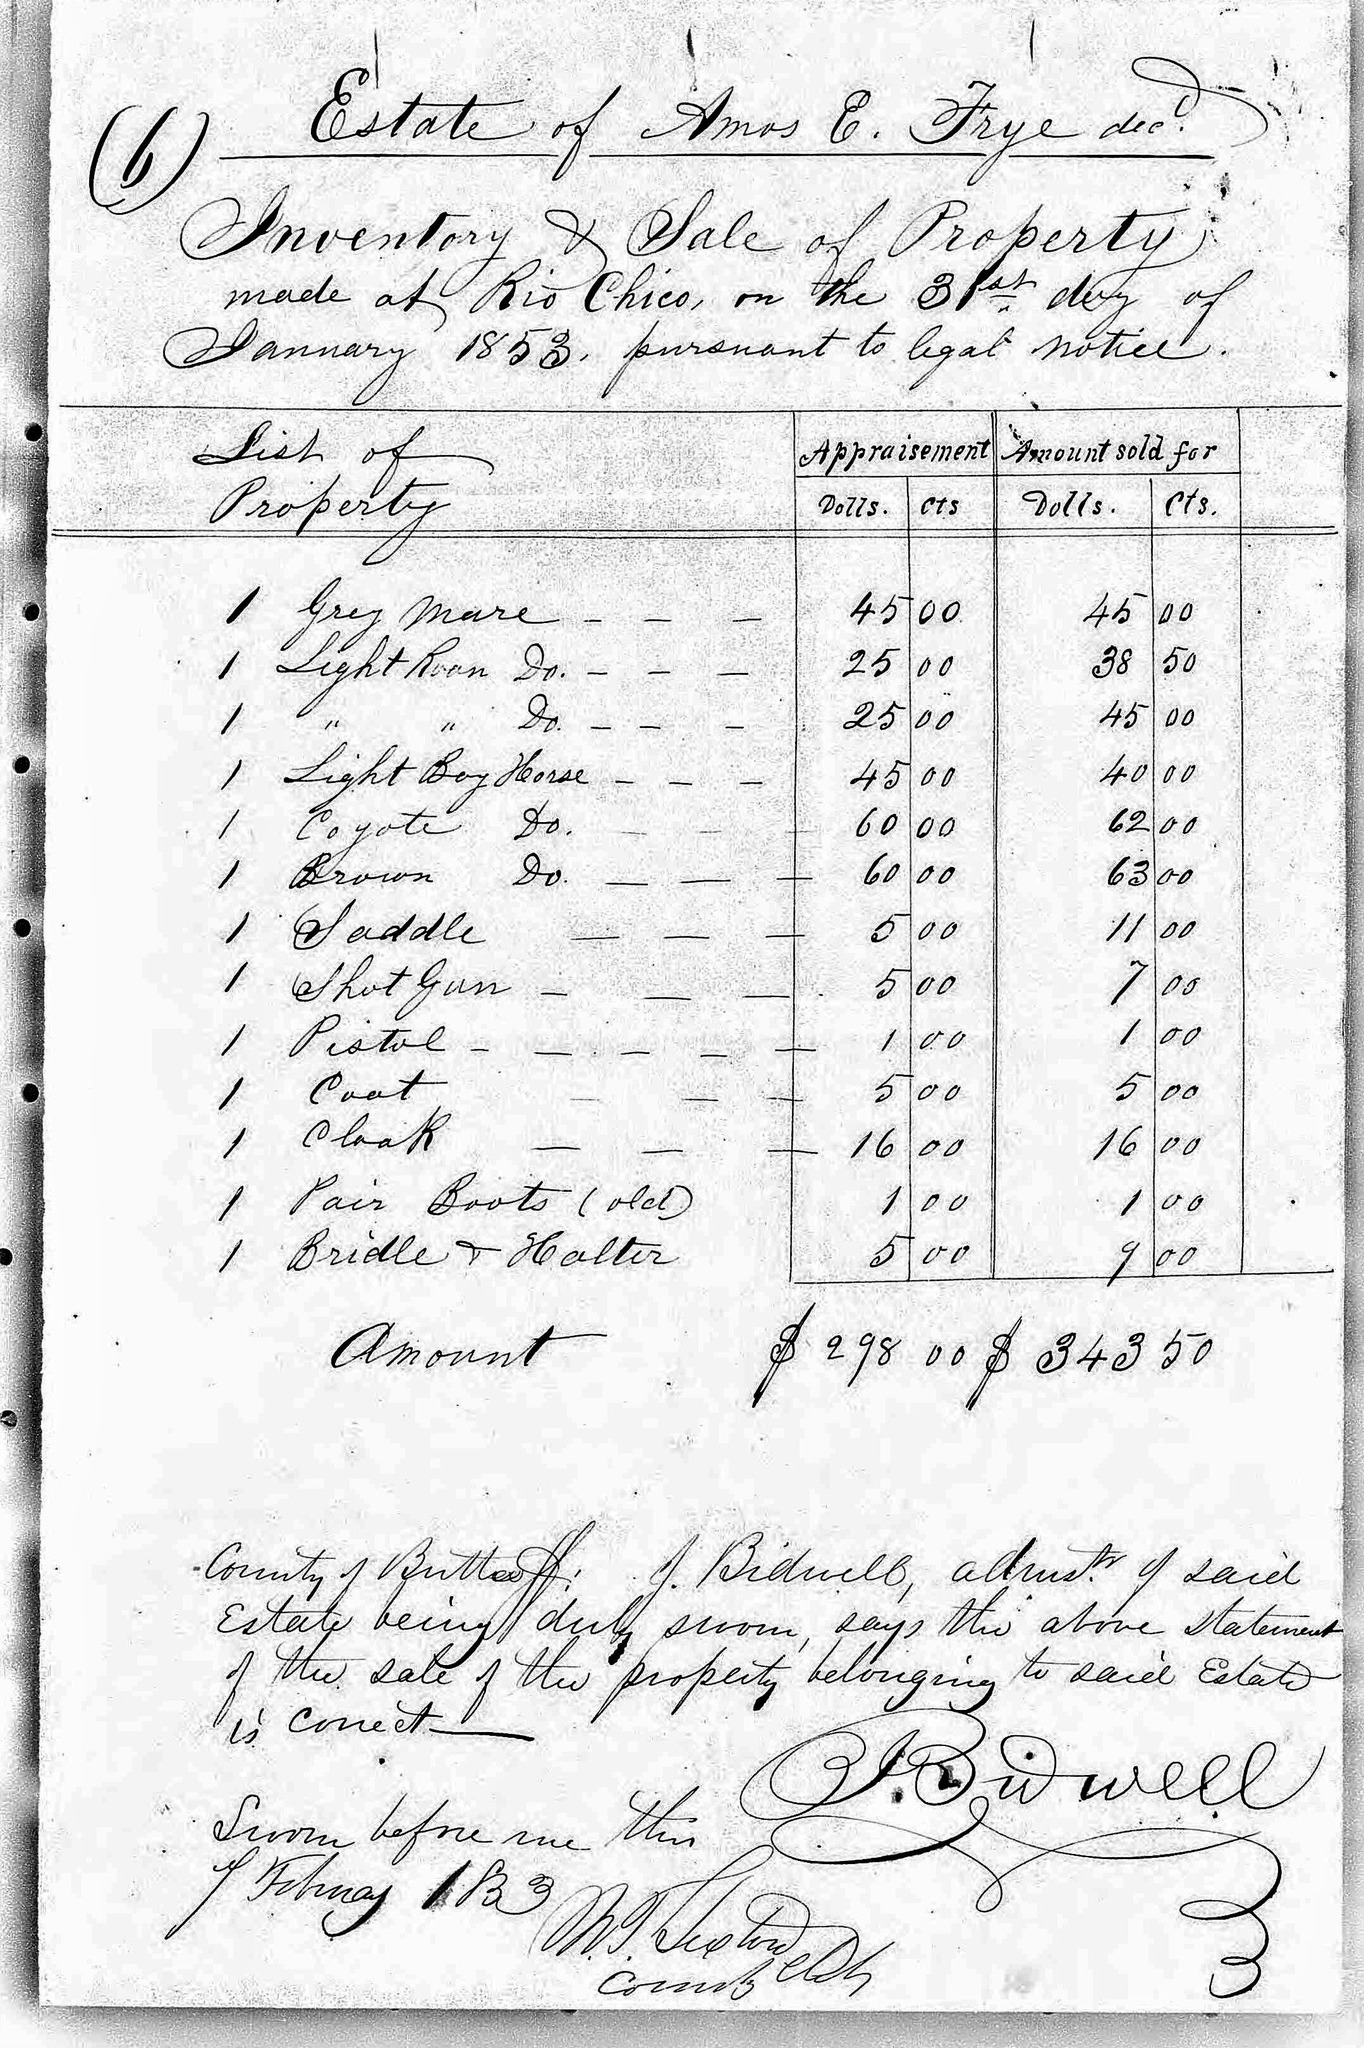 (6)
Estate of Amos E. Frye decd.
Inventory & Sale of Property
made at Rio Chico, on the 31st day of
January 1853. pursuant to legal notice.
List of Property | Appraisement | Amount sold for
Dolls. | Cts | Dolls. | Cts.
1 Grey Mare — — — 45 00 45 00
1 Light Roan Do. — — — 25 00 38 50
1 " " Do. — — — 25 00 45 00
1 Light Bay Horse — — — 45 00 40 00
1 Coyote Do. — — — 60 00 62 00
1 Brown Do. — — — 60 00 63 00
1 Saddle — — — 5 00 11 00
1 Shot Gun — — — 5 00 7 00
1 Pistol — — — — — 1 00 1 00
1 Coat — — — 5 00 5 00
1 Cloak — — — 16 00 16 00
1 Pair Boots (old) 1 00 1 00
1 Bridle & Halter 5 00 9 00
Amount $ 298 00 $ 343 50
County of Butte ss: J. Bidwell, admistr of said
Estate being duly sworn, says the above statement
of the sale of the property belonging to said Estate
is correct —
J. Bidwell
Sworn before me this
February 1853
County Clk